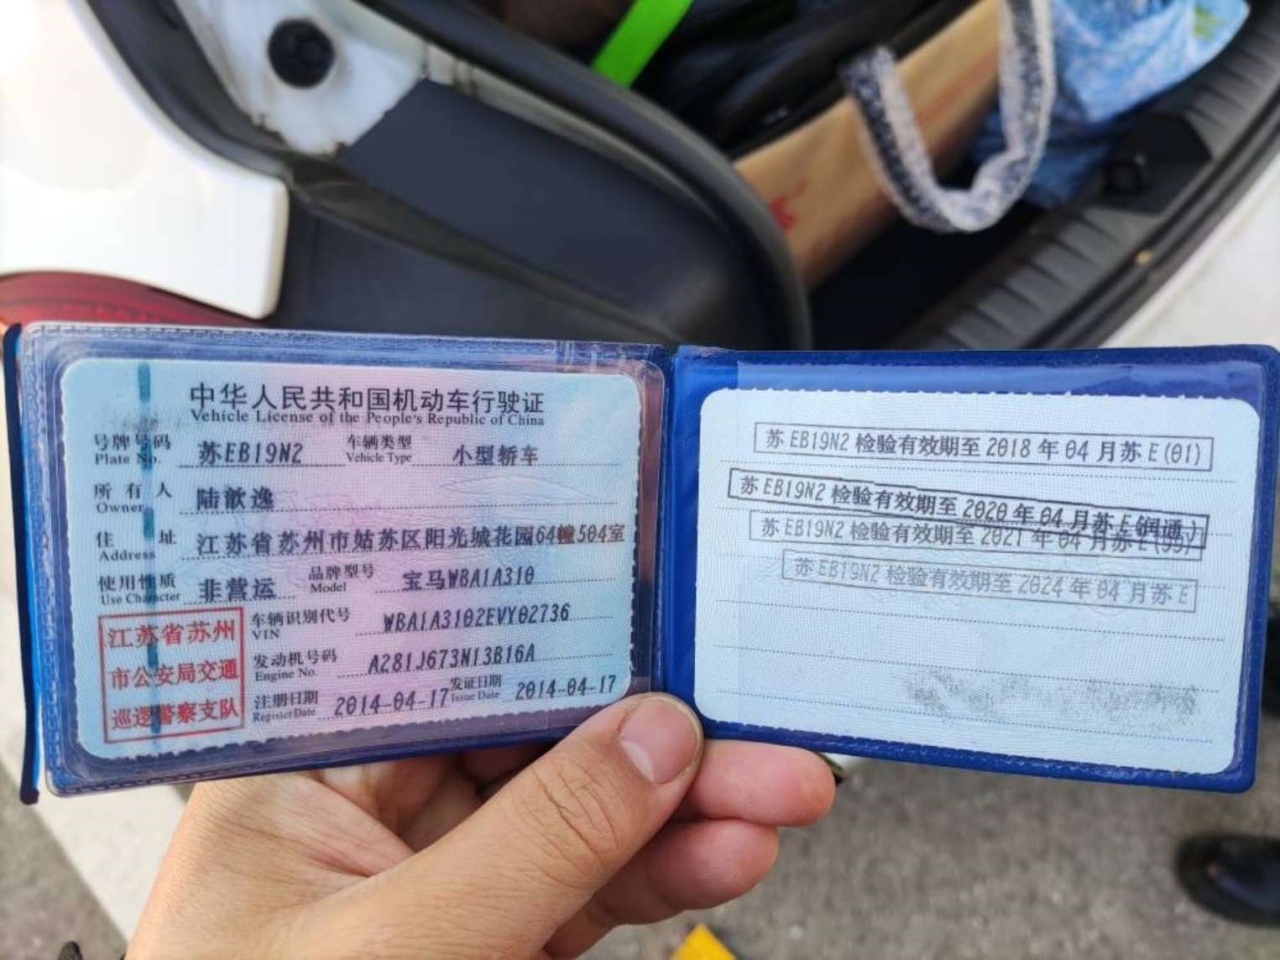 中华人民共和国机动车行驶证
Vehicle License of the People's Republic of China
号牌号码 苏EB19N2 车辆类型 小型轿车
Plate No. Vehicle Type
所有人 陆歆逸
Owner
住址 江苏省苏州市姑苏区阳光城花园64幢504室
Address
使用性质 非营运 品牌型号 宝马WBA1A310
Use Character Model
江苏省苏州
市公安局交通
巡逻警察支队
车辆识别代号 WBA1A3102EVY02736
VIN
发动机号码 A281J673N13B16A
Engine No.
注册日期 2014-04-17 发证日期 2014-04-17
Register Date Issue Date
苏EB19N2 检验有效期至 2018 年 04 月苏 E(01)
苏EB19N2 检验有效期至 2020 年 04 月苏 E(润通)
苏EB19N2 检验有效期至 2021 年 04 月苏 E(99)
苏EB19N2 检验有效期至 2024 年 04 月苏 E